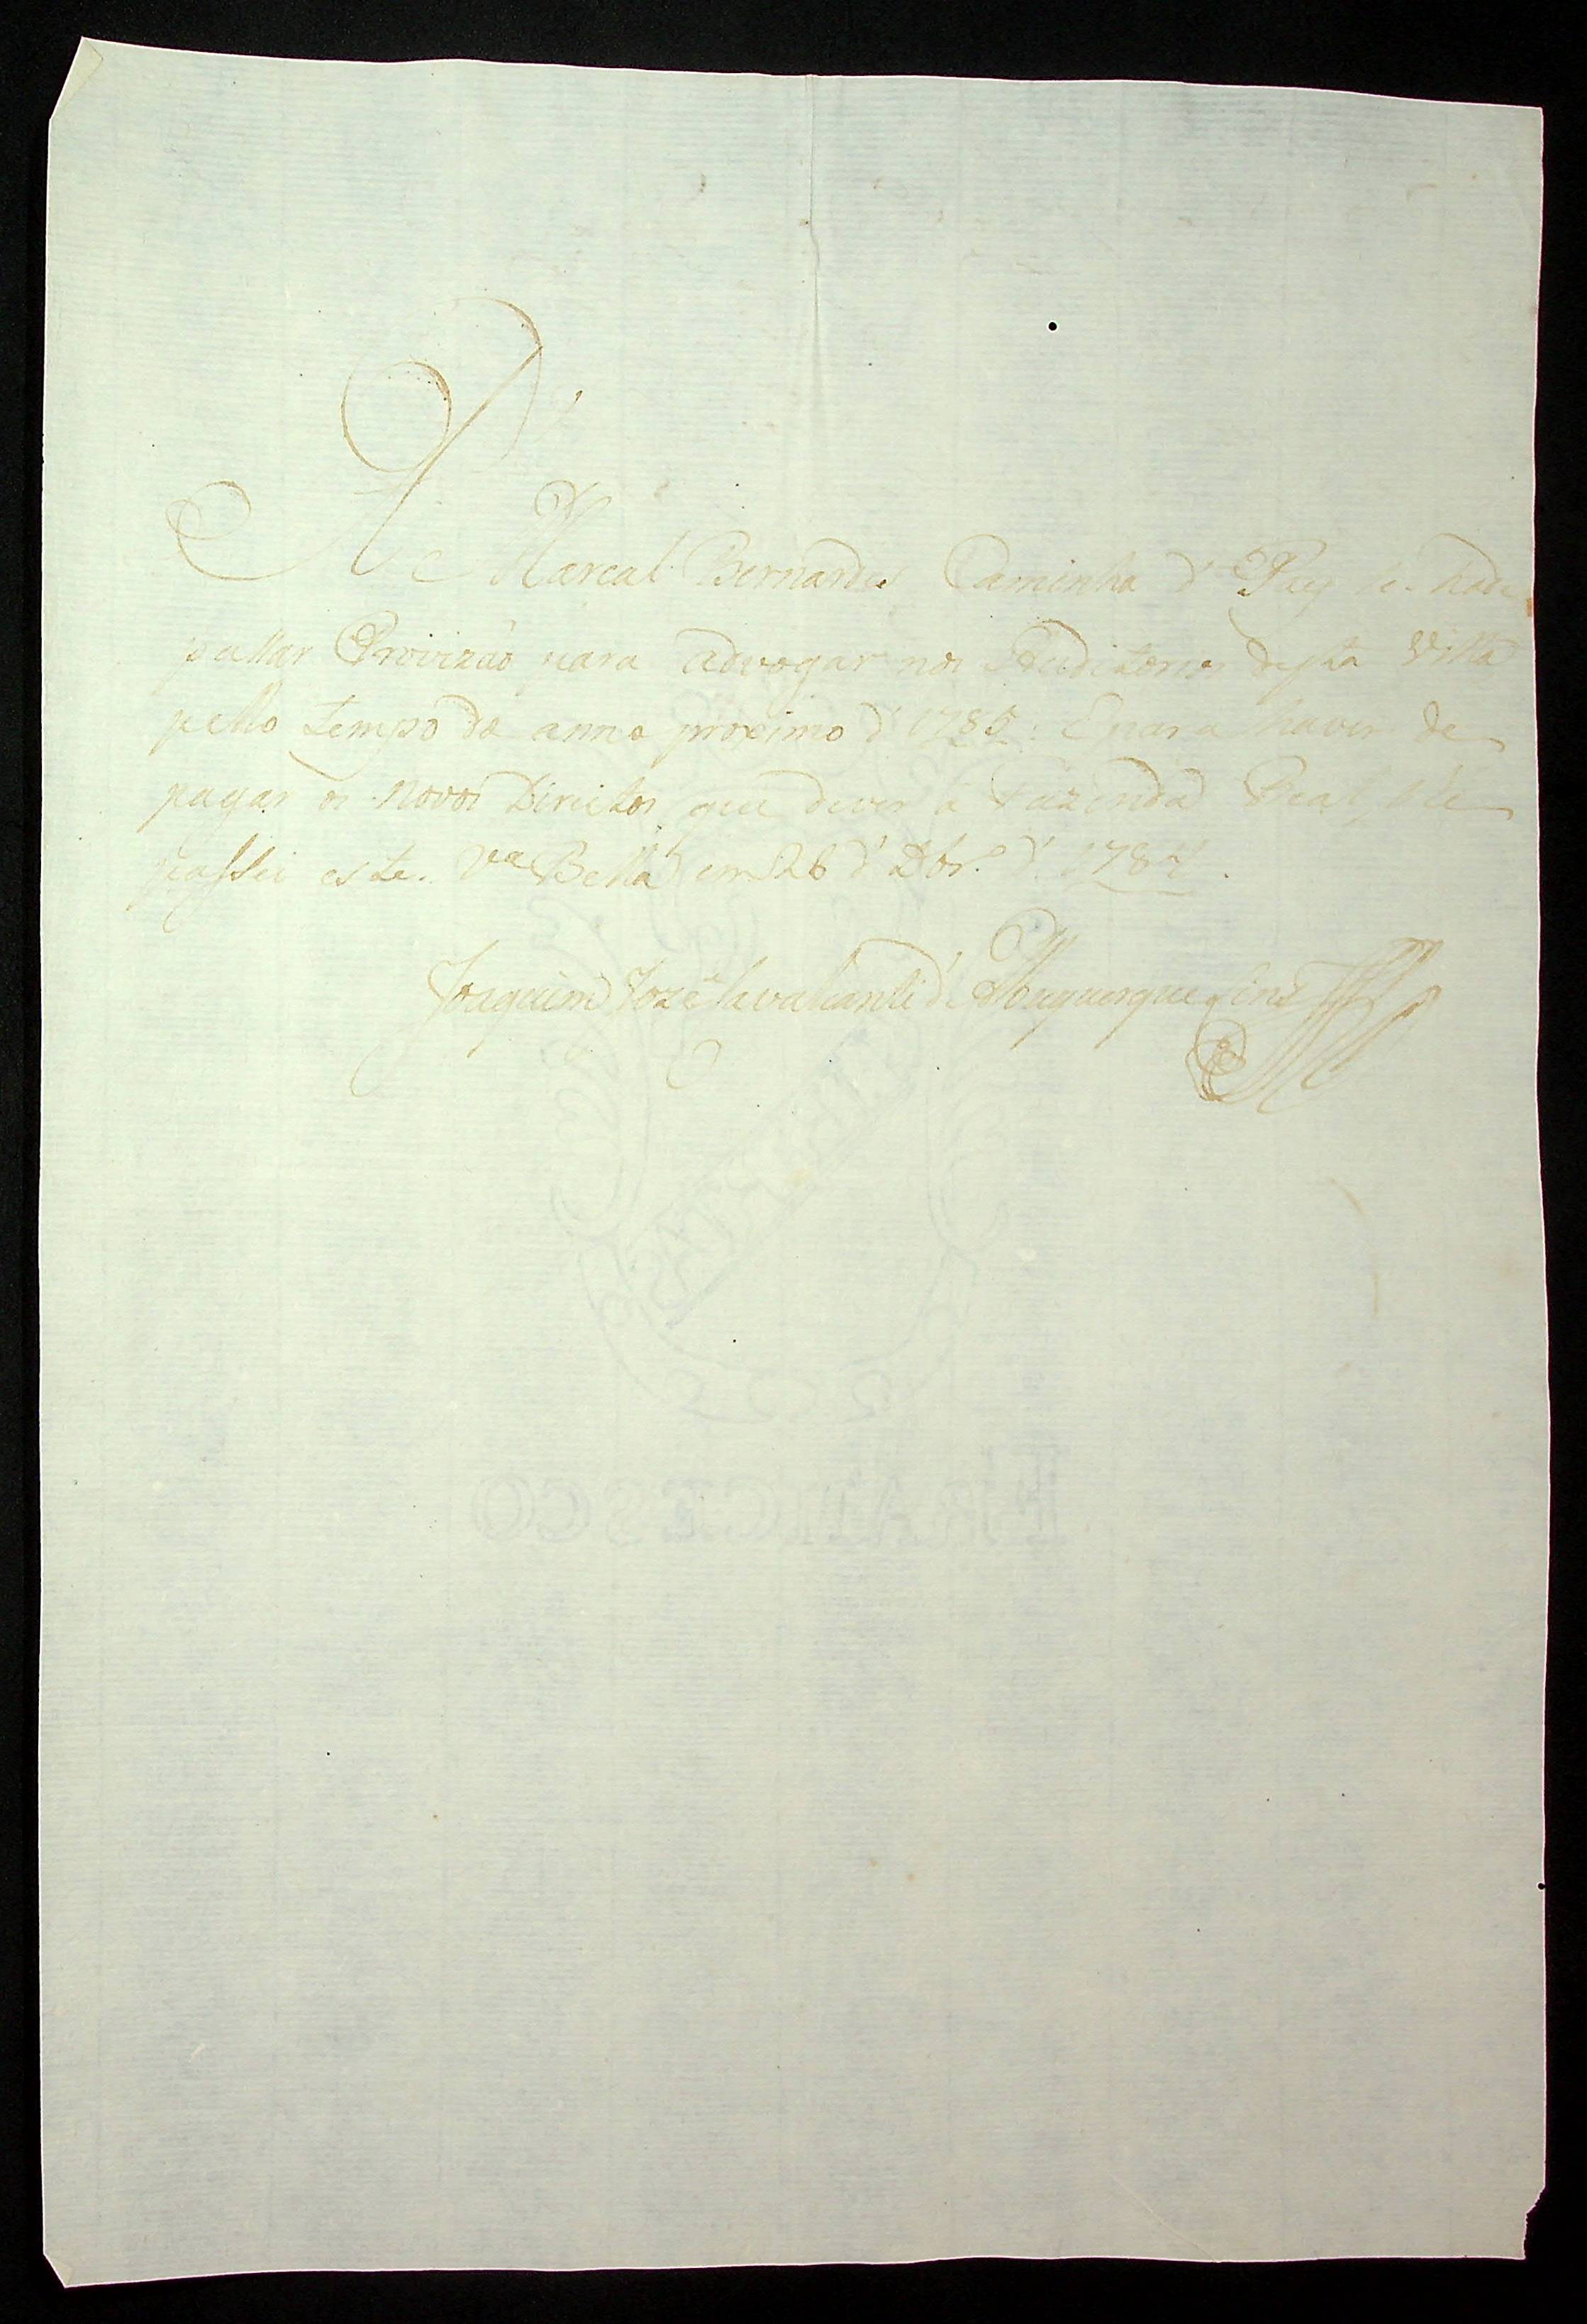 A Marcal Bernardes Caminha d' se hade
passar Provizaõ para advogar nos Auditorios desta Villa
pello tempo do anno proximo d' 1785: E para haver de
pagar os novos Direitos que dever á Fazenda Real, lhe
passei este. Va Bella em 26 d' Xbr.º d' 1784.
Joaquim Jozé Cavalcanti d' Albuquerque Lins
LIBERTAS
FRANCESCO